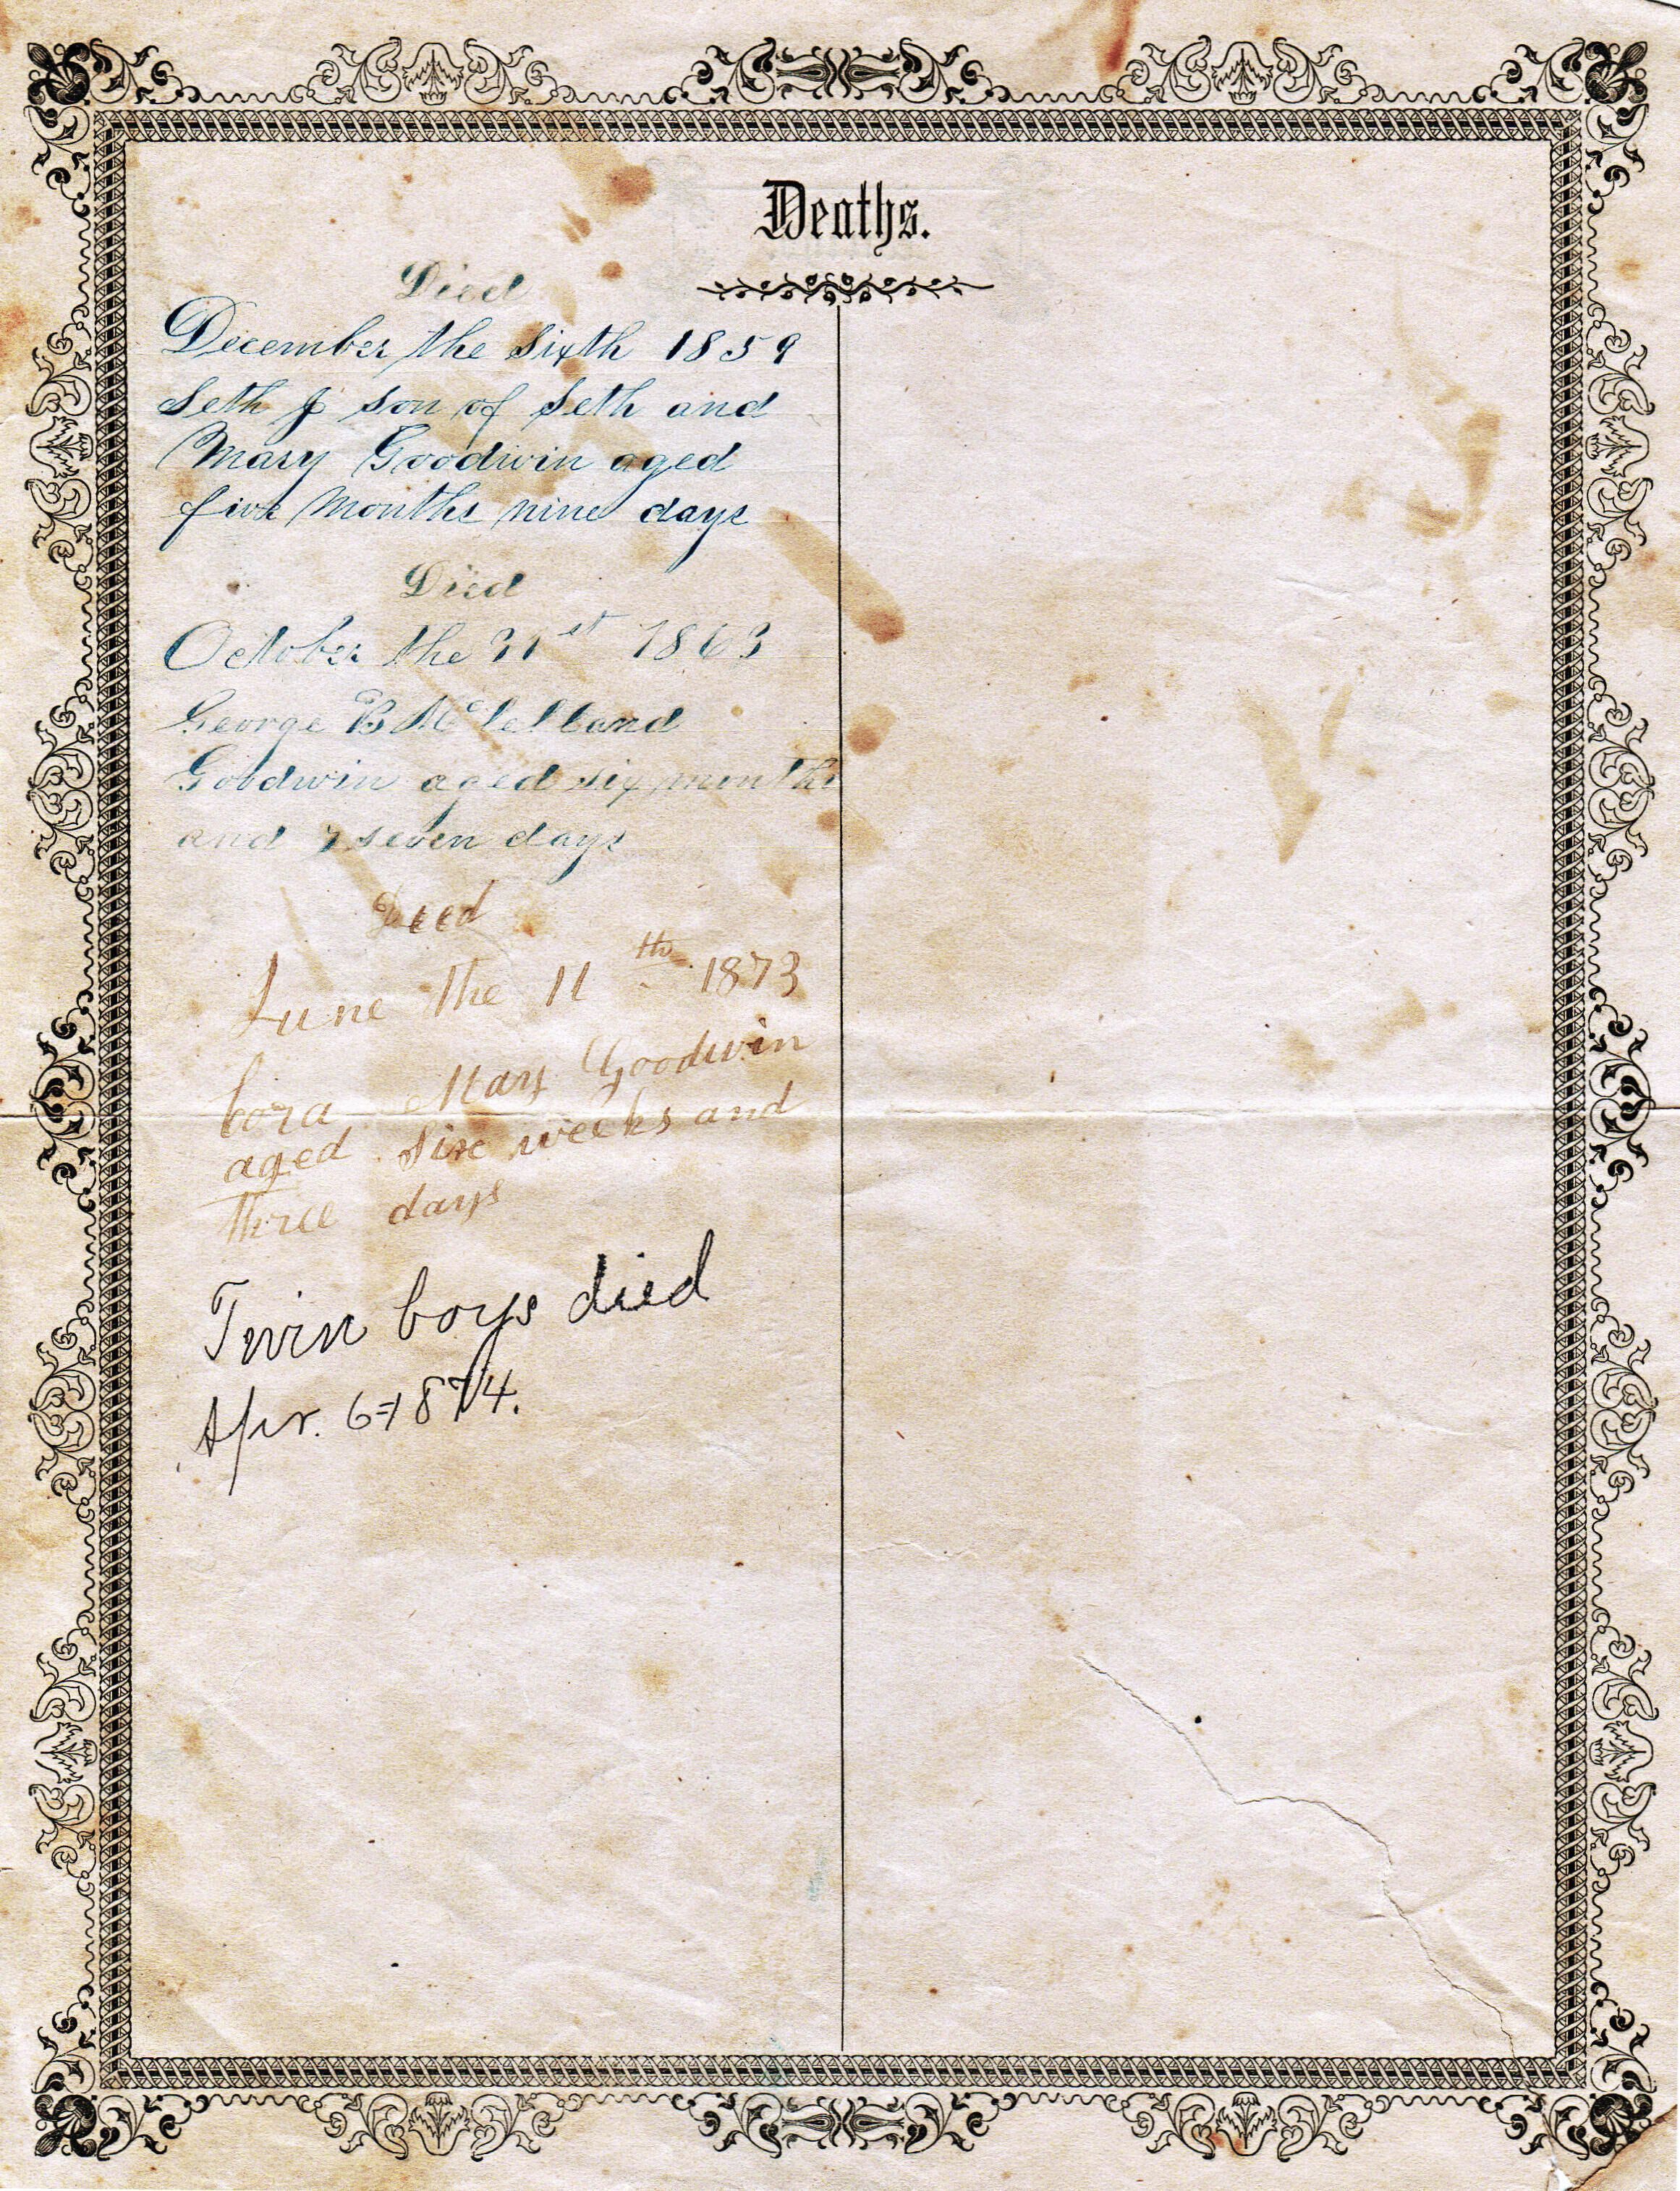 Deaths.
Died
December the Sixth 1859
Seth J son of Seth and
Mary Goodwin aged
five Months nine days
Died
October the 31st 1863
George B McLelland
Goodwin aged six months
and seven days
Died
June the 11th 1873
Cora Mary Goodwin
aged Six weeks and
three days
Twin boys died
Apr. 6-1874.